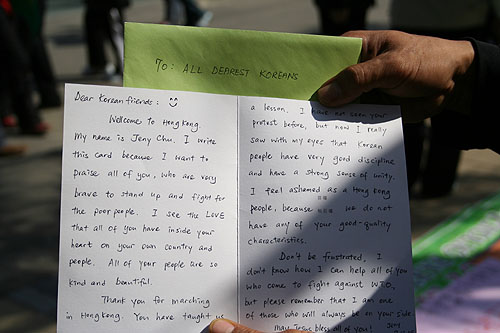 TO: ALL DEAREST KOREANS
Dear Korean friends:
Welcome to Hong Kong.
My name is Jeny Chu. I write
this card because I want to
praise all of you, who are very
brave to stand up and fight for
the poor people. I see the LOVE
that all of you have inside your
heart on your own country and
people. All of your people are so
kind and beautiful.
Thank you for marching
in Hong Kong. You have taught us
a lesson. I have not seen your
protest before, but now I really
saw with my eyes that Korean
people have very good discipline
and have a strong sense of unity.
I feel ashamed as a Hong Kong
people, because we do not
have any of your good-quality
characteristics.
Don't be frustrated, I
don't know how I can help all of you
who come to fight against WTO,
but please remember that I am one
of those who will always be on your side
May Jesus bless all of you!